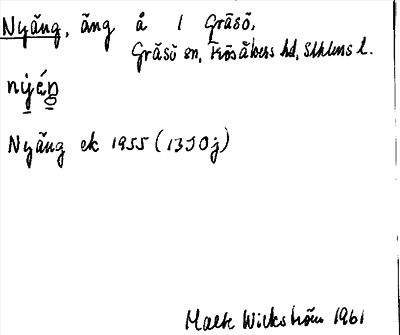 Nyäng, äng å 1 Gräsö,
Gräsö sn, Frösåkers hd, Sthlms l.
nýéŋ
Nyäng ek 1955 (13J0j)
Wickström 1961